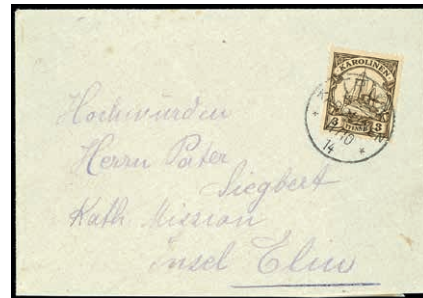 KAROLINEN
3 3
14
Hochwürden
Herrn Pater
Siegbert
Kath Mission
Insel Eliw